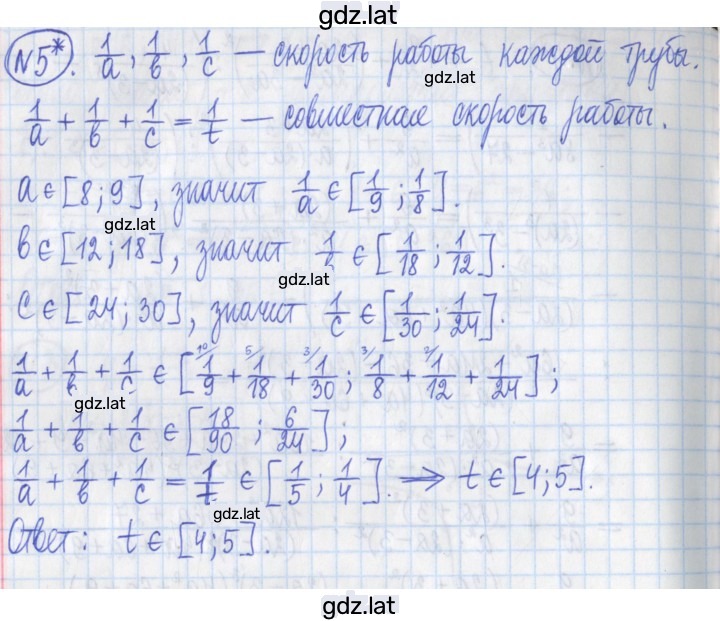 gdz.lat
№5*. 1/a, 1/в, 1/c — скорость работы каждой трубы.
gdz.lat
1/a + 1/в + 1/c = 1/t — совместная скорость работы.
a ∈ [8; 9], значит 1/a ∈ [1/9; 1/8].
gdz.lat
в ∈ [12; 18], значит 1/в ∈ [1/18; 1/12].
gdz.lat
c ∈ [24; 30], значит 1/c ∈ [1/30; 1/24].
1/a + 1/в + 1/c ∈ [10/ 1/9 + 5/ 1/18 + 3/ 1/30; 3/ 1/8 + 2/ 1/12 + 1/24];
gdz.lat
1/a + 1/в + 1/c ∈ [18/90; 6/24];
1/a + 1/в + 1/c = 1/t ∈ [1/5; 1/4]. ⟹ t ∈ [4; 5].
gdz.lat
Ответ: t ∈ [4; 5].
gdz.lat